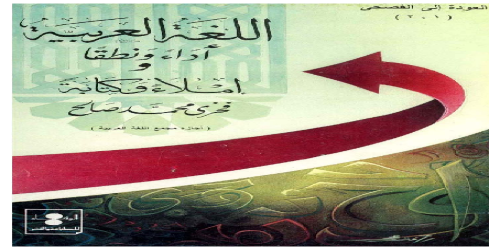 العودة إلى الفصحى
( ٢٠١ )
اللغة العربية
أداء ونطقا
و
إملاء وكتابة
فخرى محمد صالح
( أجازه مجمع اللغة العربية )
الوفاء